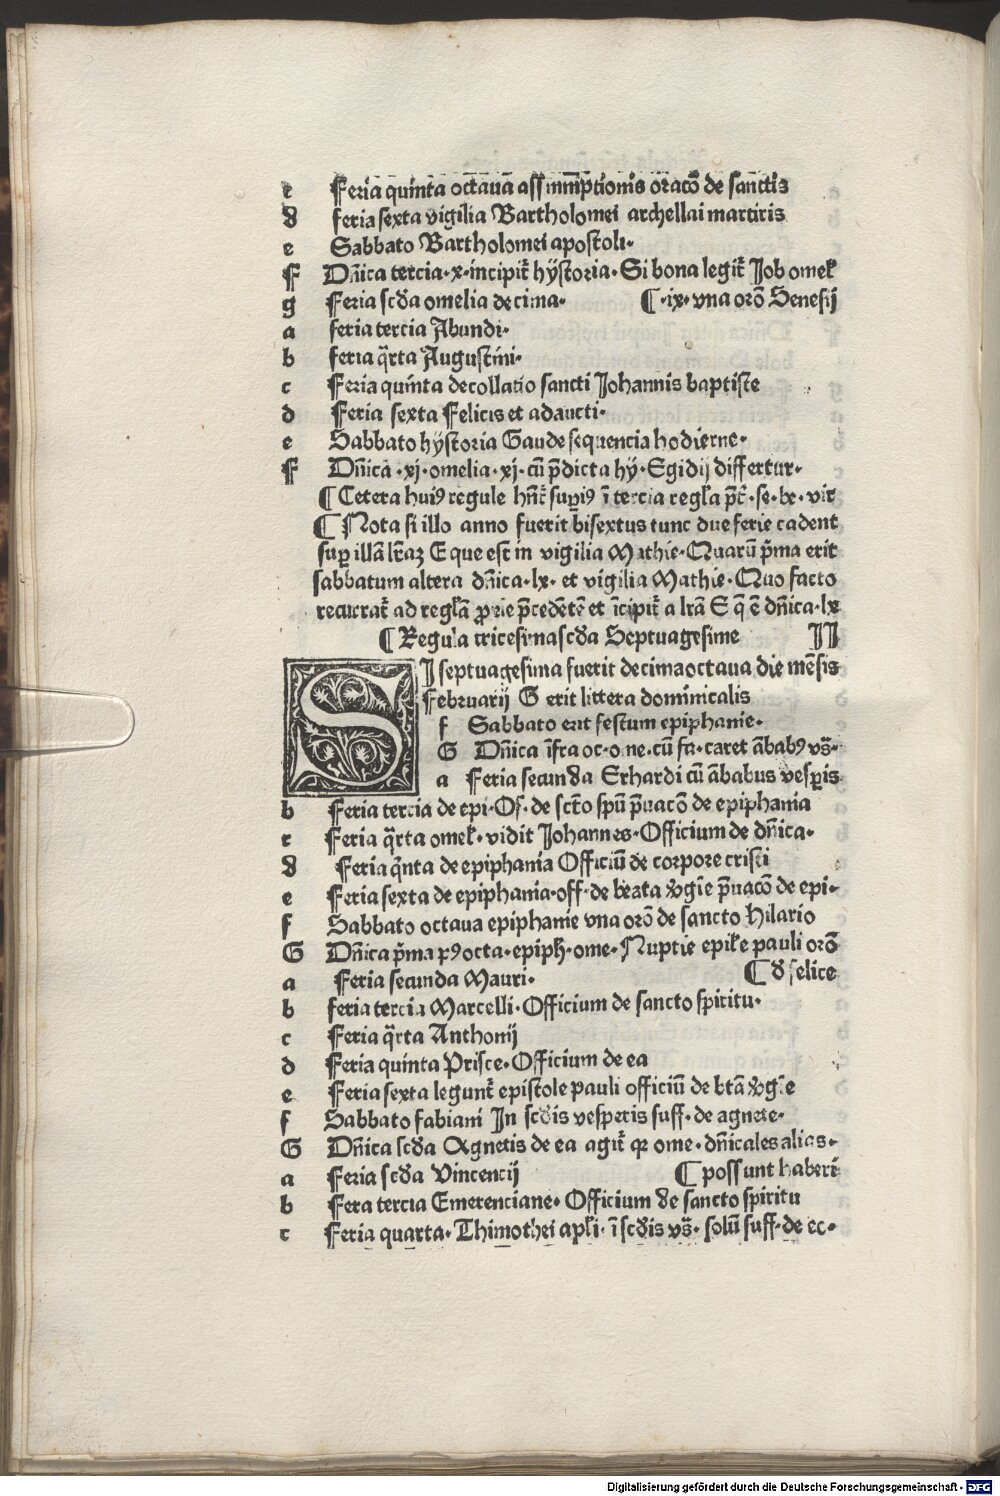 c Feria quinta octauā assummptionis oracō de sanctis
d feria sexta vigilia Bartholomei archellai martiris
e Sabbato Bartholomei apostoli·
F Dn̄ica tercia·x·incipit̄ hystoria·Si bona legit̄ Job omel̄
g Feria scd̄a omelia decima· ¶·ix·vna orō Senesij
a feria tercia Abundi·
b feria q̄rta Augustini·
c Feria quinta decollatio sancti Johannis baptiste
d Feria sexta Felicis et adaucti·
e Sabbato hystoria Gaude sequencia hodierne·
F Dn̄ica·xj·omelia·xj·cū p̄dicta hy·Egidij differtur·
¶Cetera huiꝰ regule hn̄t̄ supi̱ꝰ ī tercia regl̄a p̄t̄·se·lx·vit
¶Nota si illo anno fuerit bisextus tunc due ferie cadent
sup̱ illā lr̄aꝫ E que est in vigilia Mathie·Quarū p̄ma erit
sabbatum altera dn̄ica·lx·et vigilia Mathie·Quo facto
recurrat̄ ad regl̄ā ꝓxie p̄cedētē et īcipit̄ a lr̄ā S q̄ ē dn̄ica·lx
¶Regula tricesimascd̄a Septuagesime II
SI septuagesima fuerit decimaoctaua die mēsis
Februarij G erit littera dominicalis
f Sabbato erit festum epiphanie·
G Dn̄ica īfra oc·o ne·cū fa·caret ābabꝰ vs̄·
a Feria secunda Erhardi cū ābabus vesp̱is
b Feria tercia de epi·Of·de sct̄o spū p̄uacō de epiphania
c Feria q̄rta omel̄·vidit Johannes·Officium de dn̄ica·
d Feria q̄nta de epiphania Officiū de corpore cristi
e Feria sexta de epiphania·off·de beata v̄gīe p̄uacō de epi·
f Sabbato octaua epiphanie vna orō de sancto Hilario
G Dn̄ica p̄ma pꝰocta·epiph̄·ome·Nuptie epil̄e pauli orō
a Feria secunda Mauri· ¶d̄ felice
b feria tercia Marcelli·Officium de sancto spiritu·
c Feria q̄rta Anthonij
d Feria quinta Prisce·Officium de ea
e Feria sexta legunt̄ epistole pauli officiū de bt̄ā v̄gīe
f Sabbato fabiani In scd̄is vesperis suff·de agnete·
G Dn̄ica scd̄a Agnetis de ea agit̄ qꝛ ome·dn̄icales alias·
a Feria scd̄a Vincencij ¶possunt haberi
b Fera tercia Emerenciane·Officium de sancto spiritu
c Feria quarta·Thimothei apl̄i·ī scd̄is vs̄·solū suff·de ec·
Digitalisierung gefördert durch die Deutsche Forschungsgemeinschaft - DFG